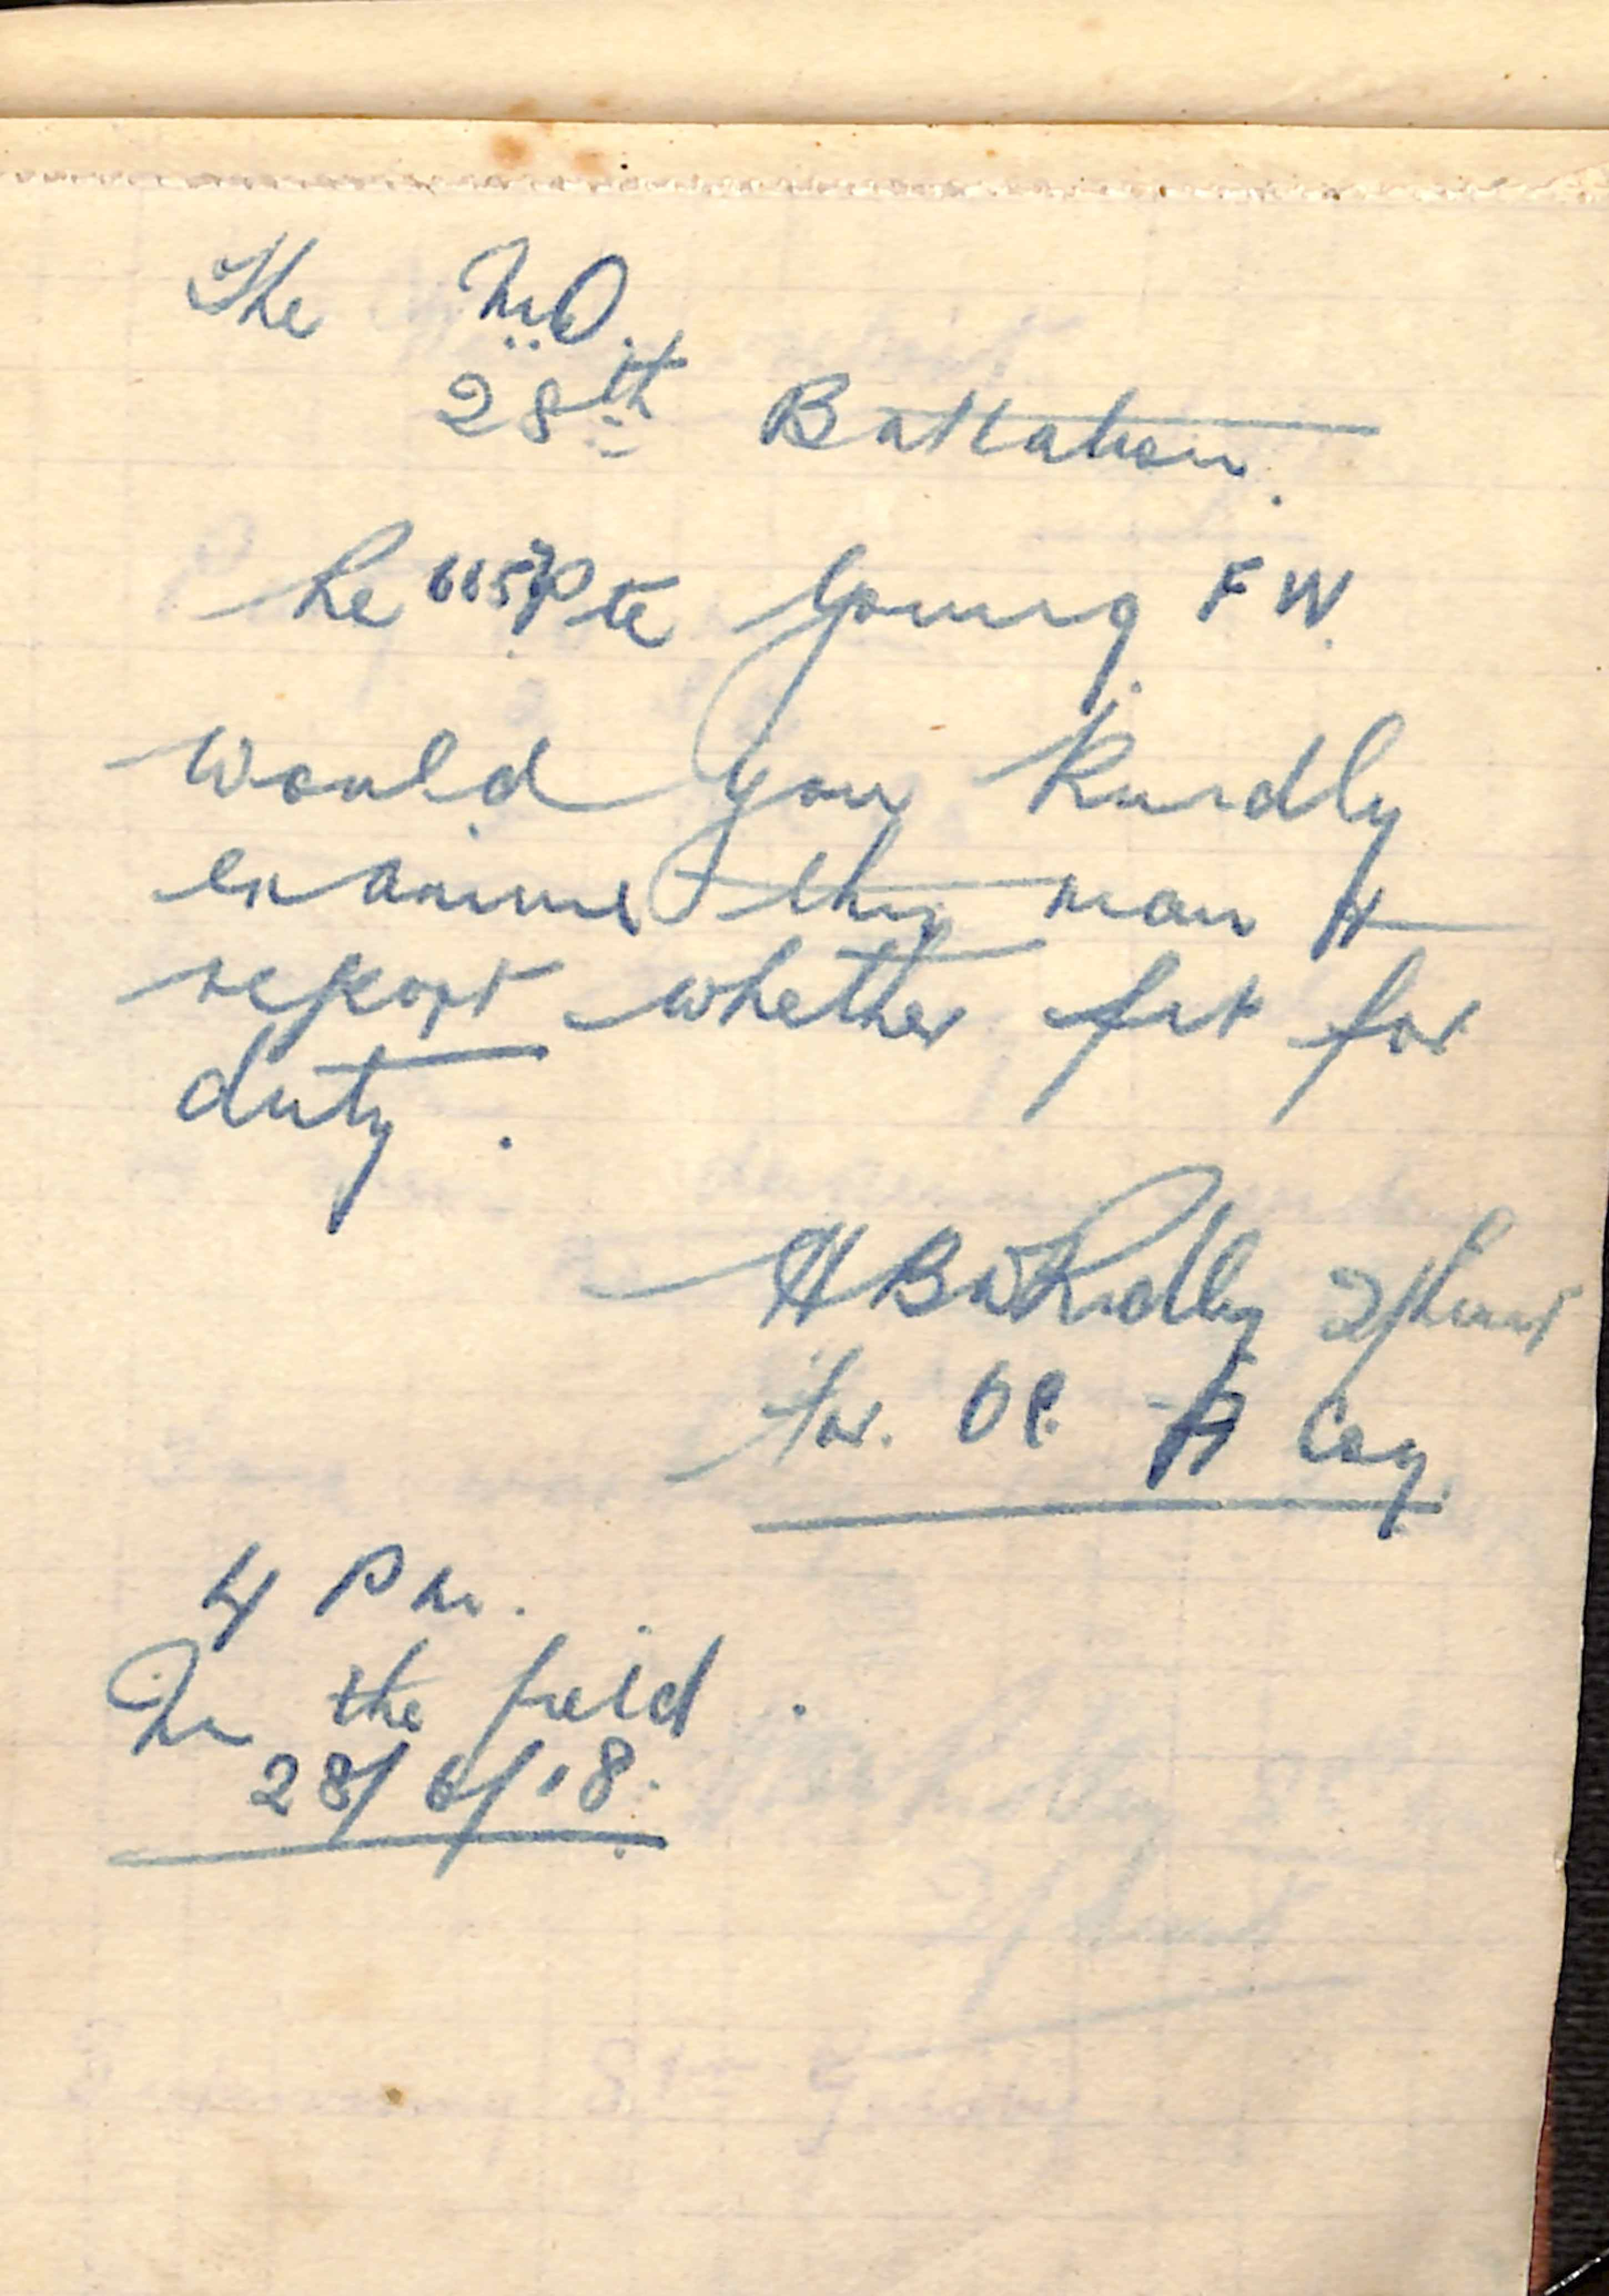 The M.O.
28th Battalion.
Re Pte Young. F W.
Would you kindly
examine this man &
report whether fit for
duty.
H B W Ridley 2/Lieut
for. OC. A Coy.
4 Pm.
In the field.
28/6/18.